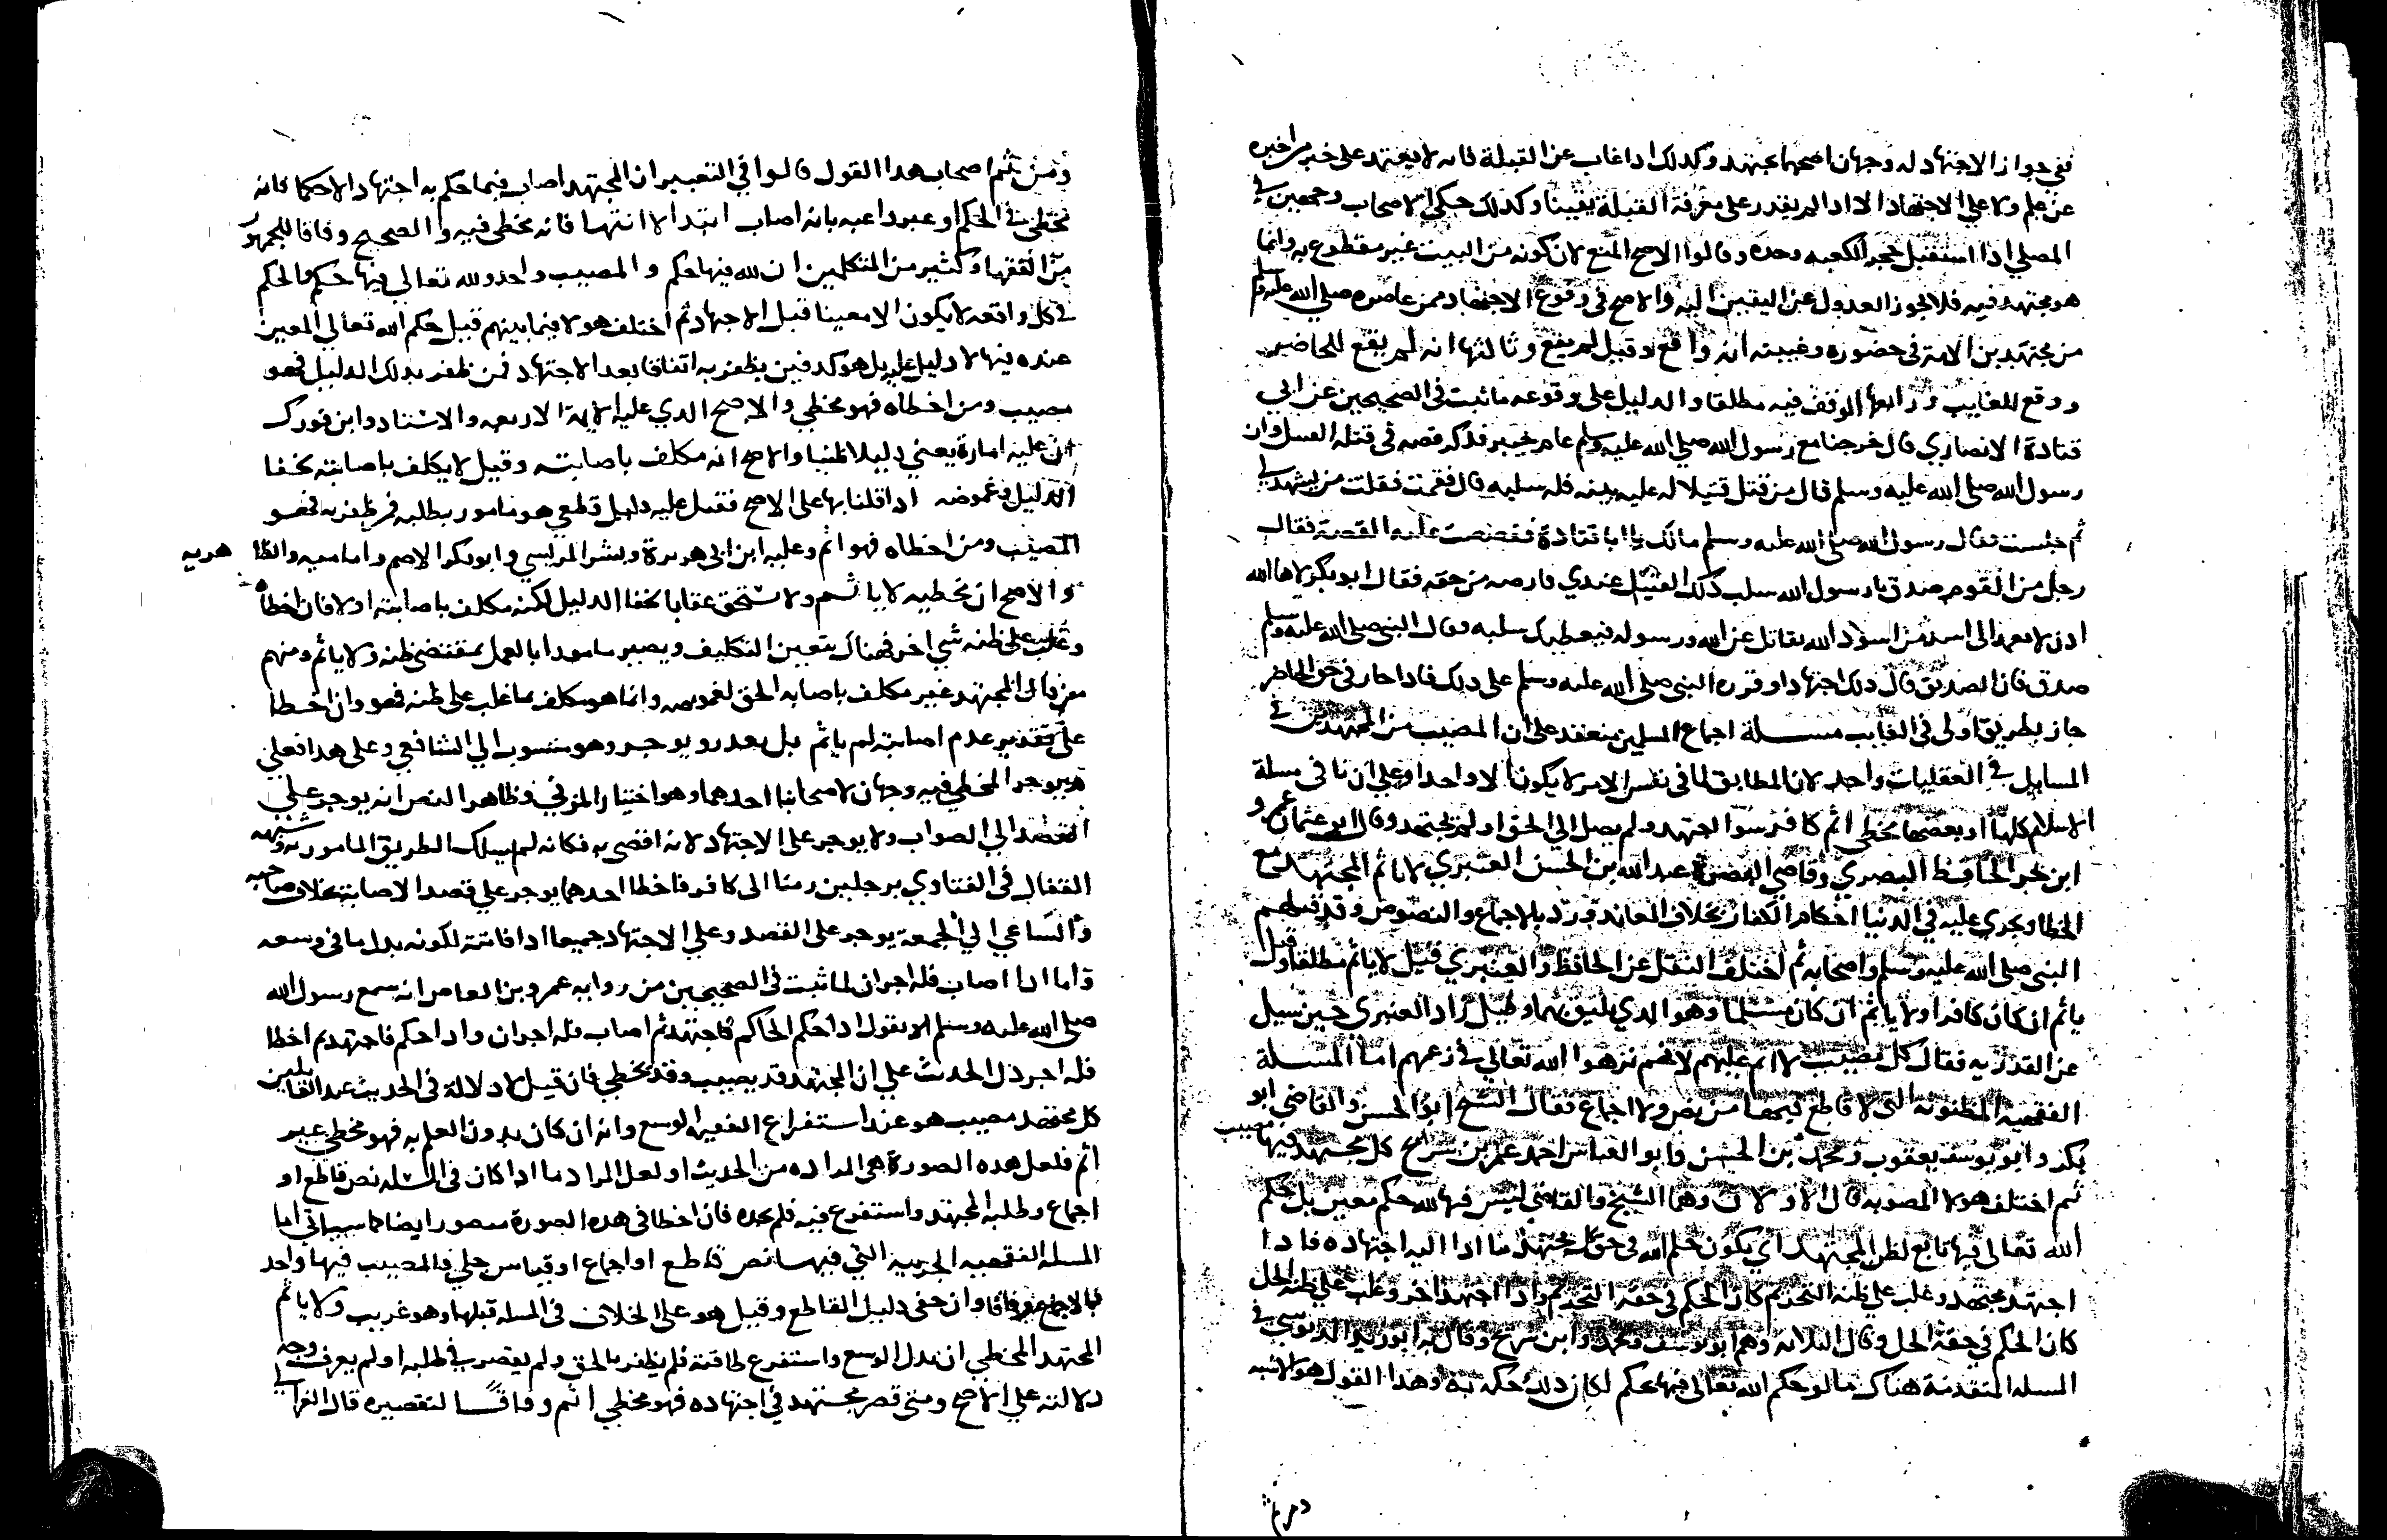 ففي جواز الاجتهاد له وجهان اصحهما يجتهد وكذلك اذا غاب عن القبلة فانه لا يعتمد على خبر من اخبره
عن علم ولا على الاجتهاد الا اذا لم يقدر على معرفة القبلة يقينا وكذلك حكى الاصحاب وجهين في
المصلي اذا استقبل حجر الكعبه وحده وقالوا الاصح المنع لان كونه من البيت غير مقطوع به وانما
هو مجتهد فيه فلا يجوز العدول عن اليقين اليه والاصح في وقوع الاجتهاد ممن عاصره صلى الله عليه وسلم
من مجتهدين الامة في حضوره وغيبته انه واقع وقيل لم يقع وثالثها انه لم يقع للحاضر
ووقع للغايب ورابعها الوقف فيه مطلقا والدليل على وقوعه ما ثبت في الصحيحين عن ابي
قتادة الانصاري قال خرجنا مع رسول الله صلى الله عليه وسلم عام خيبر فذكر قصه في قتله القتيل وان
رسول الله صلى الله عليه وسلم قال من قتل قتيلا له عليه بينه فله سلبه قال فقمت فقلت من يشهد لي
ثم جلست فقال رسول الله صلى الله عليه وسلم مالك يا ابا قتادة فقصصت عليه القصة فقال
رجل من القوم صدق يا رسول الله سلب ذلك القتيل عندي فارضه من حقه فقال ابو بكر لاها الله
اذن لا يعمد الى اسد من اسود الله يقاتل عن الله ورسوله فيعطيك سلبه فقال النبي صلى الله عليه وسلم
صدق فان الصديق قال ذلك اجتهادا وقرره النبي صلى الله عليه وسلم على ذلك فاذا جاز في حق الحاضر
جاز بطريق اولى في الغايب مسلة اجماع المسلمين منعقد على ان المصيب من المجتهدين في
المسايل في العقليات واحد لان المطابق لما في نفس الامر لا يكون الا واحدا وعلى ان نافي مسلة
الاسلام كلها او بعضها مخطي اثم كافر سوا اجتهد ولم يصل الى الحق او لم يجتهد وقال ابو عثمان عمرو
ابن بحر الحافظ البصري وقاضي البصرة عبد الله بن الحسن العنبري لا ياثم المجتهد مع
الخطا ويجري عليه في الدنيا احكام الكفار بخلاف المعاند ورد بالاجماع والنصوص وقد قتلهم
النبي صلى الله عليه وسلم واصحابه ثم اختلف النقل عن الحافظ والعنبري قيل لا ياثم مطلقا وقيل
ياثم ان كان كافرا ولا ياثم ان كان مسلما وهو الذي يليق بهما وقيل زاد العنبري حين سيل
عن القدريه فقال كل مصيب لا اثم عليهم لانهم نزهوا الله تعالى في زعمهم اما المسلة
الفقهية المظنونة التي لا قاطع فيها من نص ولا اجماع فقال الشيخ ابو الحسن والقاضي ابو
بكر وابو يوسف يعقوب ومحمد بن الحسن وابو العباس احمد عمر بن سريج كل مجتهد فيها مصيب
ثم اختلف هولا المصوبه قال الاولان وهما الشيخ والقاضي ليس فيها لله حكم معين بل حكم
الله تعالى فيها تابع لظن المجتهد اي يكون حكم الله في حق كل مجتهد ما ادا اليه اجتهاده فاذا
اجتهد مجتهد وغلب على ظنه التحريم كان الحكم في حقه التحريم واذا اجتهد اخر وغلب على ظنه الحل
كان الحكم في حقه الحل وقال الثلاثه وهم ابو يوسف ومحمد وابن سريج وقال به ابو زيد الدبوسي في
المسله المتقدمة هناك ما لو حكم الله تعالى فيها بحكم لكان ذلك حكمه به وهذا القول هو الاشبه
ومن ثم اصحاب هذا القول قالوا في التعبير ان المجتهد اصاب فيما حكم به اجتهادا لا حكما فانه
مخطي في الحكم او عبروا عنه بانه اصاب ابتدا لا انتها فانه مخطي فيه والصحيح وفاقا للجمهور
من الفقها وكثير من المتكلمين ان لله فيها حكم والمصيب واحد ولله تعالى فيها حكم والحكم
في كل واقعه لا يكون الا معينا قبل الاجتهاد ثم اختلف هولا فيما بينهم قيل حكم الله تعالى المعين
عنده فيها لا دليل عليه بل هو كدفين يظفر به اتفاقا بعد الاجتهاد فمن ظفر بذلك الدليل فهو
مصيب ومن اخطاه فهو مخطي والاصح الذي عليه الايمة الاربعه والاستاد وابن فورك
ان عليه امارة يعني دليلا ظنيا والاصح انه مكلف باصابته وقيل لا يكلف باصابته لخفا
الدليل وغموضه اذا قلنا بها على الاصح فقيل عليه دليل قطعي هو مامور بطلبه فمن ظفر به فهو
المصيب ومن اخطاه فهو اثم وعليه ابن ابي هريرة وبشر المريسي وابو بكر الاصم واما ميه والظا هريه
والاصح ان مخطيه لا ياثم ولا يستحق عقابا لخفا الدليل لكنه مكلف باصابته اولا فان اخطاه
وغلب على ظنه شي اخر فهناك يتعين التكليف ويصير مامورا بالعمل بمقتضى ظنه ولا ياثم ومنهم
من قال المجتهد غير مكلف باصابه الحق لغموضه وانما هو مكلف بما غلب على ظنه فهو وان اخطا
على تقدير عدم اصابته لم ياثم بل يعذر ويوجر وهو منسوب الى الشافعي وعلى هذا فعلى
م يوجر المخطي فيه وجهان لاصحابنا احدهما وهو اختيار المزني وظاهر النص انه يوجر على
القصد الى الصواب ولا يوجر على الاجتهاد لانه افضى به فكانه لم يسلك الطريق المامور به وشبهه
القفال في الفتاوي برجلين رميا الى كافر فاخطا احدهما يوجر على قصد الاصابة بخلاف صاحبه
والساعي الى الجمعة يوجر على القصد وعلى الاجتهاد جميعا اذا فاتته لكونه بذل ما في وسعه
واما اذا اصاب فله اجران لما ثبت في الصحيحين من روايه عمرو بن العاص انه سمع رسول الله
صلى الله عليه وسلم يقول اذا حكم الحاكم فاجتهد ثم اصاب فله اجران واذا حكم فاجتهد ثم اخطا
فله اجر دل الحديث على ان المجتهد قد يصيب وقد يخطي فان قيل لا دلالة في الحديث عند القايلين
كل مجتهد مصيب هو عند استفراغ الفقيه الوسع وانه ان كان بدون العلم به فهو مخطي غير
اثم فلعل هذه الصورة هي المراده من الحديث او لعل المراد ما اذا كان في المسله نص قاطع او
اجماع وطلبه المجتهد واستفرغ فيه فلم يجده فان اخطا في هذه الصورة متصور ايضا كما سياتي اما
المسله الفقهيه الجزيه التي فيها نص قاطع او اجماع او قياس جلي فالمصيب فيها واحد
بالاجماع وفاقا وان خفي دليل القاطع وقيل هو على الخلاف في المسله قبلها وهو غريب ولا ياثم
المجتهد المخطي ان بذل الوسع واستفرغ طاقته فلم يظفر بالحق ولم يقصر في طلبه او لم يعرف وجه
دلالته على الاصح ومتى قصر مجتهد في اجتهاده فهو مخطي اثم وفاقا لتقصيره قال الغزالي